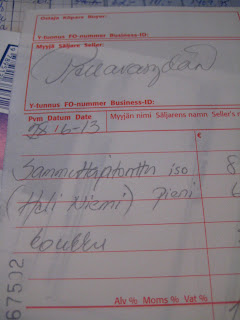 Ostaja Köpare Buyer:
Y-tunnus FO-nummer Business-ID:
Myyjä Säljare Seller:
Y-tunnus FO-nummer Business-ID:
Pvm Datum Date
Myyjän nimi Säljarens namn Seller's n
28.6-13
€
iso 8
(Heli Niemi) pieni 6
67502
Alv % Moms % Vat %